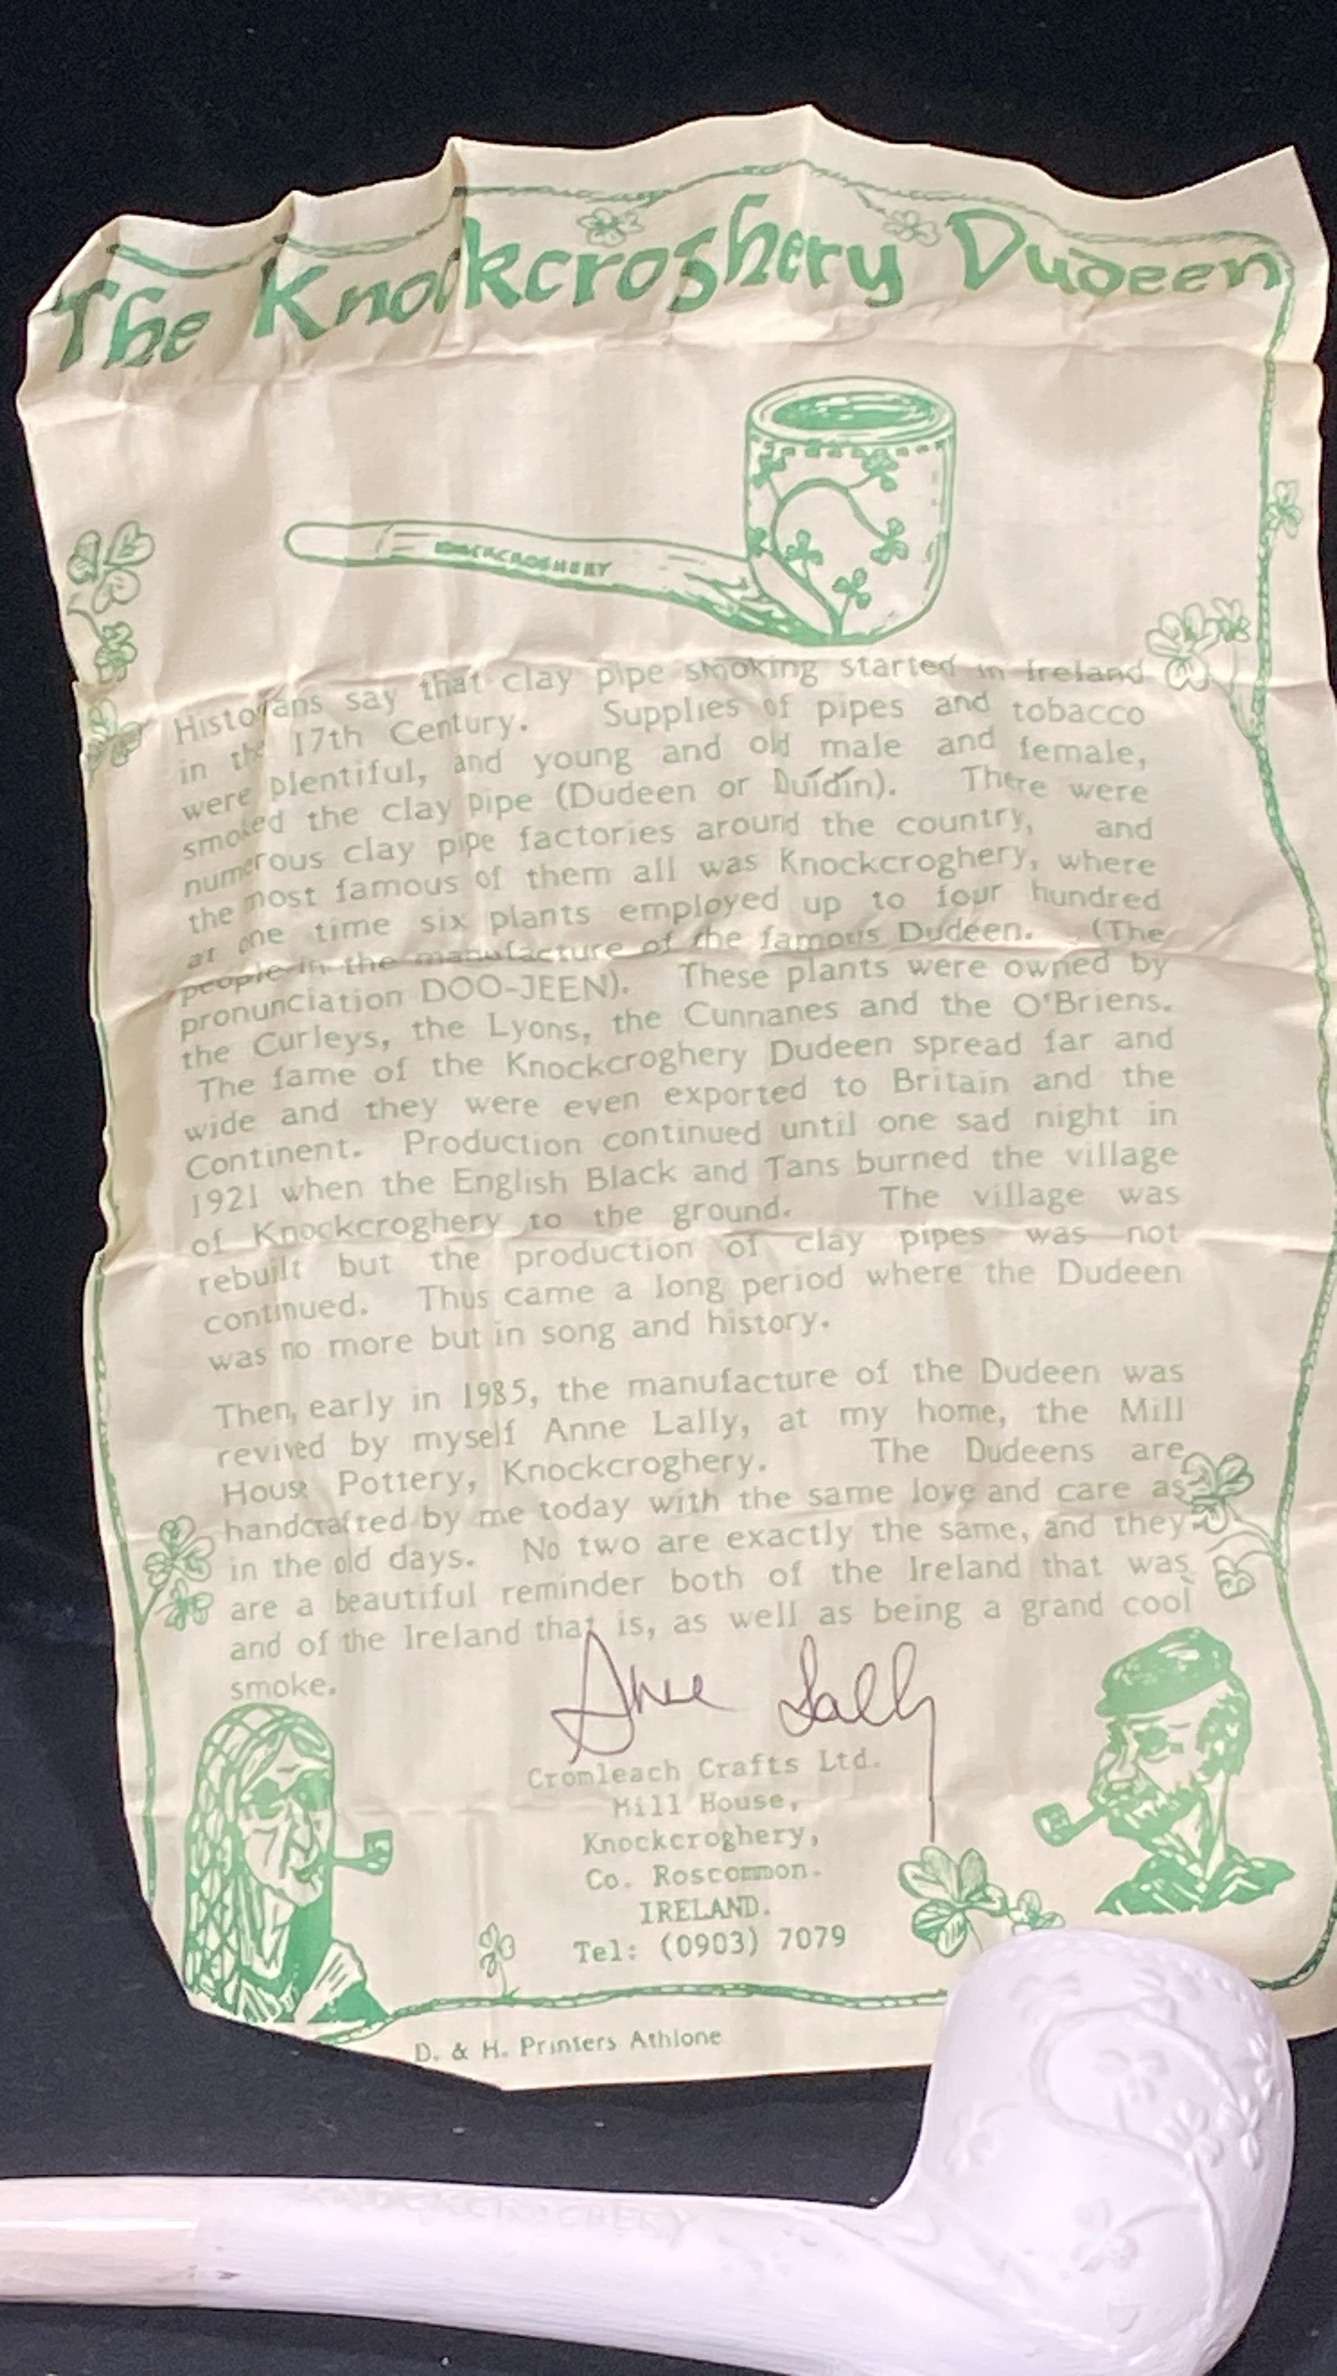 The Knockcroghery Dudeen
KNOCKCROGHERY
Historians say that clay pipe smoking started in Ireland
in the 17th Century. Supplies of pipes and tobacco
were plentiful, and young and old male and female,
smoked the clay pipe (Dudeen or Duídín). There were
numerous clay pipe factories around the country, and
the most famous of them all was Knockcroghery, where
at one time six plants employed up to four hundred
people in the manufacture of the famous Dudeen. (The
pronunciation DOO-JEEN). These plants were owned by
the Curleys, the Lyons, the Cunnanes and the O'Briens.
The fame of the Knockcroghery Dudeen spread far and
wide and they were even exported to Britain and the
Continent. Production continued until one sad night in
1921 when the English Black and Tans burned the village
of Knockcroghery to the ground. The village was
rebuilt but the production of clay pipes was not
continued. Thus came a long period where the Dudeen
was no more but in song and history.
Then, early in 1985, the manufacture of the Dudeen was
revived by myself Anne Lally, at my home, the Mill
House Pottery, Knockcroghery. The Dudeens are
handcrafted by me today with the same love and care as
in the old days. No two are exactly the same, and they
are a beautiful reminder both of the Ireland that was
and of the Ireland that is, as well as being a grand cool
smoke.
Anne Lally
Cromleach Crafts Ltd.
Mill House,
Knockcroghery,
Co. Roscommon.
IRELAND.
Tel: (0903) 7079
D. & H. Printers Athlone
KNOCKCROGHERY